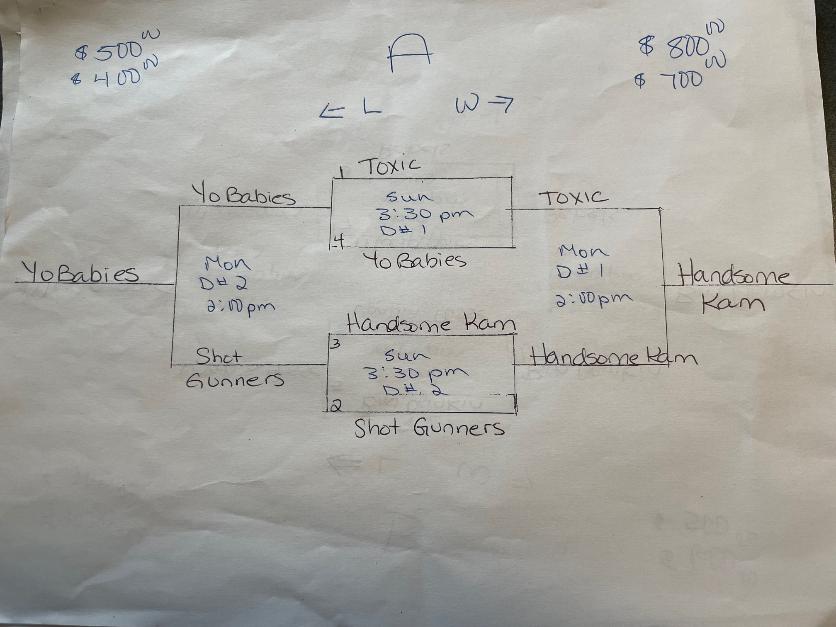 $ 500 00
$ 400 00
A
$ 800 00
$ 700 00
← L
W →
1
Toxic
Yo Babies
Sun
3:30 pm
D#1
Toxic
4
Yo Babies
Yo Babies
Mon
D#2
2:00pm
Mon
D#1
2:00pm
Handsome
Kam
Handsome Kam
3
Shot
Gunners
Sun
3:30 pm
D#2
Handsome Kam
2
Shot Gunners